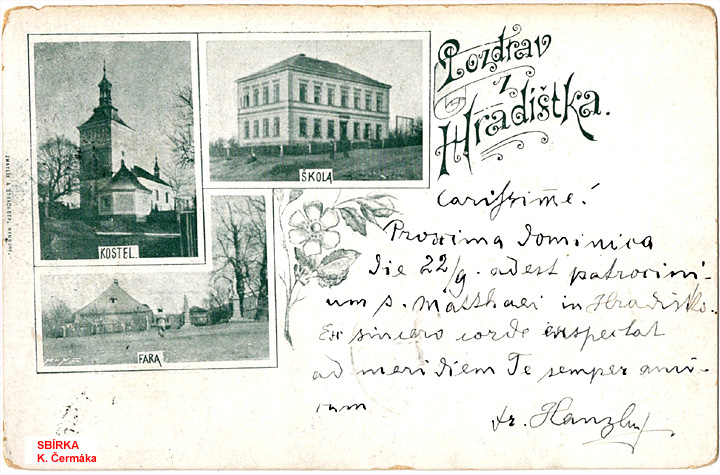 Pozdrav
z
Hradištka.
ŠKOLA
KOSTEL.
FARA
Carissime!
Proxima dominica
die 22/9. adest patrocini-
um s. Matthaei in Hradiško.
Ex sincero corde exspectat
ad meridiem Te semper ami-
cum
fr. Hanzl
SBÍRKA
K. Čermáka